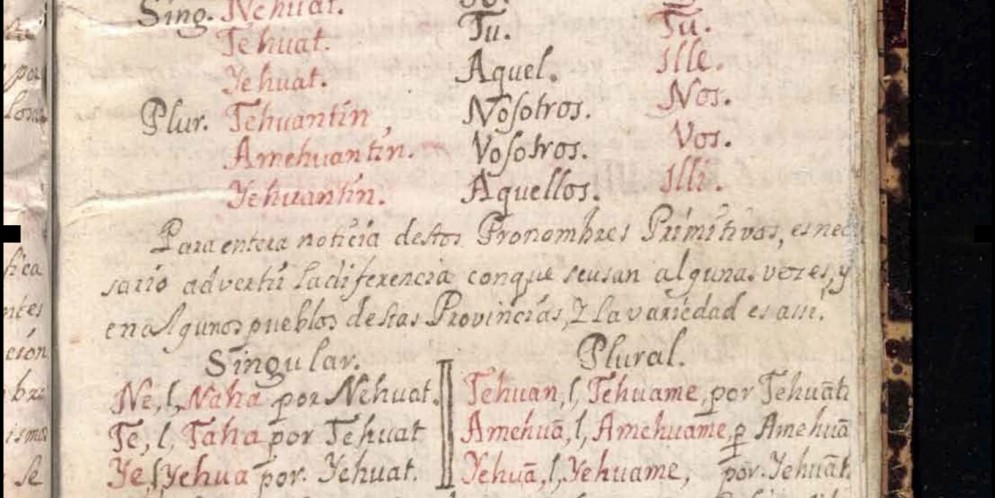 Sing. Nehuat. Yo. Ego.
Tehuat. Tu. Tu.
Yehuat. Aquel. Ille.
Plur. Tehuantin Nosotros. Nos.
Amehuantin. Vosotros. Vos.
Yehuantin. Aquellos. Illi.
Para entera noticia destos Pronombres Primitivos, es nece
sario advertir la diferencia conque se usan algunas vezes, y
en algunos pueblos destas Provincias, Y la variedad es assi.
Singular. Plural.
Ne, l, Naha por Nehuat. Tehuan, l, Tehuame, por Tehuāti
Te, l, Taha por Tehuat Amehuā, l, Amehuame, p̱ Amehuā
Ye, l, Yehua por. Yehuat. Yehuā, l, Yehuame, por. Yehuāt.